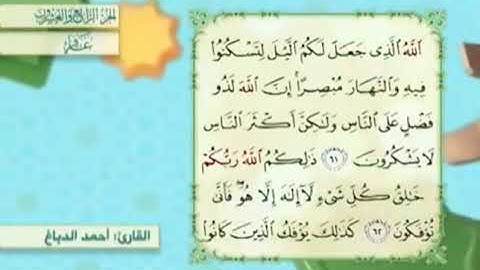 الجزء الرابع والعشرون
غافر
ٱللَّهُ ٱلَّذِى جَعَلَ لَكُمُ ٱلَّيْلَ لِتَسْكُنُوا۟
فِيهِ وَٱلنَّهَارَ مُبْصِرًا إِنَّ ٱللَّهَ لَذُو
فَضْلٍ عَلَى ٱلنَّاسِ وَلَٰكِنَّ أَكْثَرَ ٱلنَّاسِ
لَا يَشْكُرُونَ ٦١ ذَٰلِكُمُ ٱللَّهُ رَبُّكُمْ
خَٰلِقُ كُلِّ شَىْءٍ لَّآ إِلَٰهَ إِلَّا هُوَ ۖ فَأَنَّىٰ
تُؤْفَكُونَ ٦٢ كَذَٰلِكَ يُؤْفَكُ ٱلَّذِينَ كَانُوا۟
القارئ: أحمد الدباغ